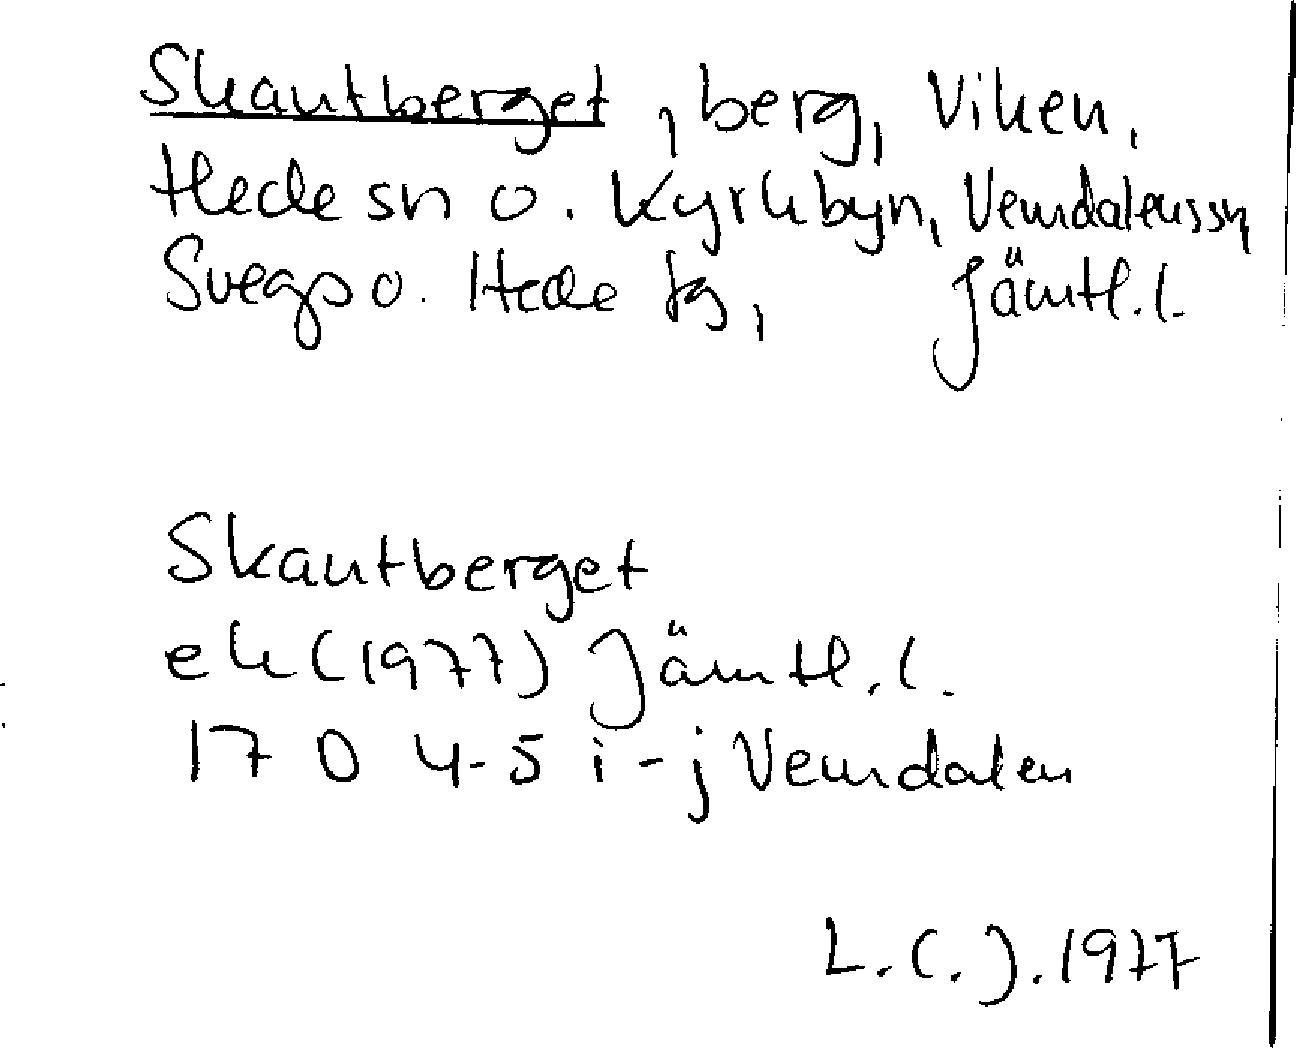 Skautberget, berg, Viken,
Hede sn o. Kyrkbyn, Vemdalens sn,
Svegs o. Hede tg, Jämtl. l.
Skautberget
ek (1977) Jämtl. l.
17 D 4-5 i-j Vemdalen
L.C.J. 1977